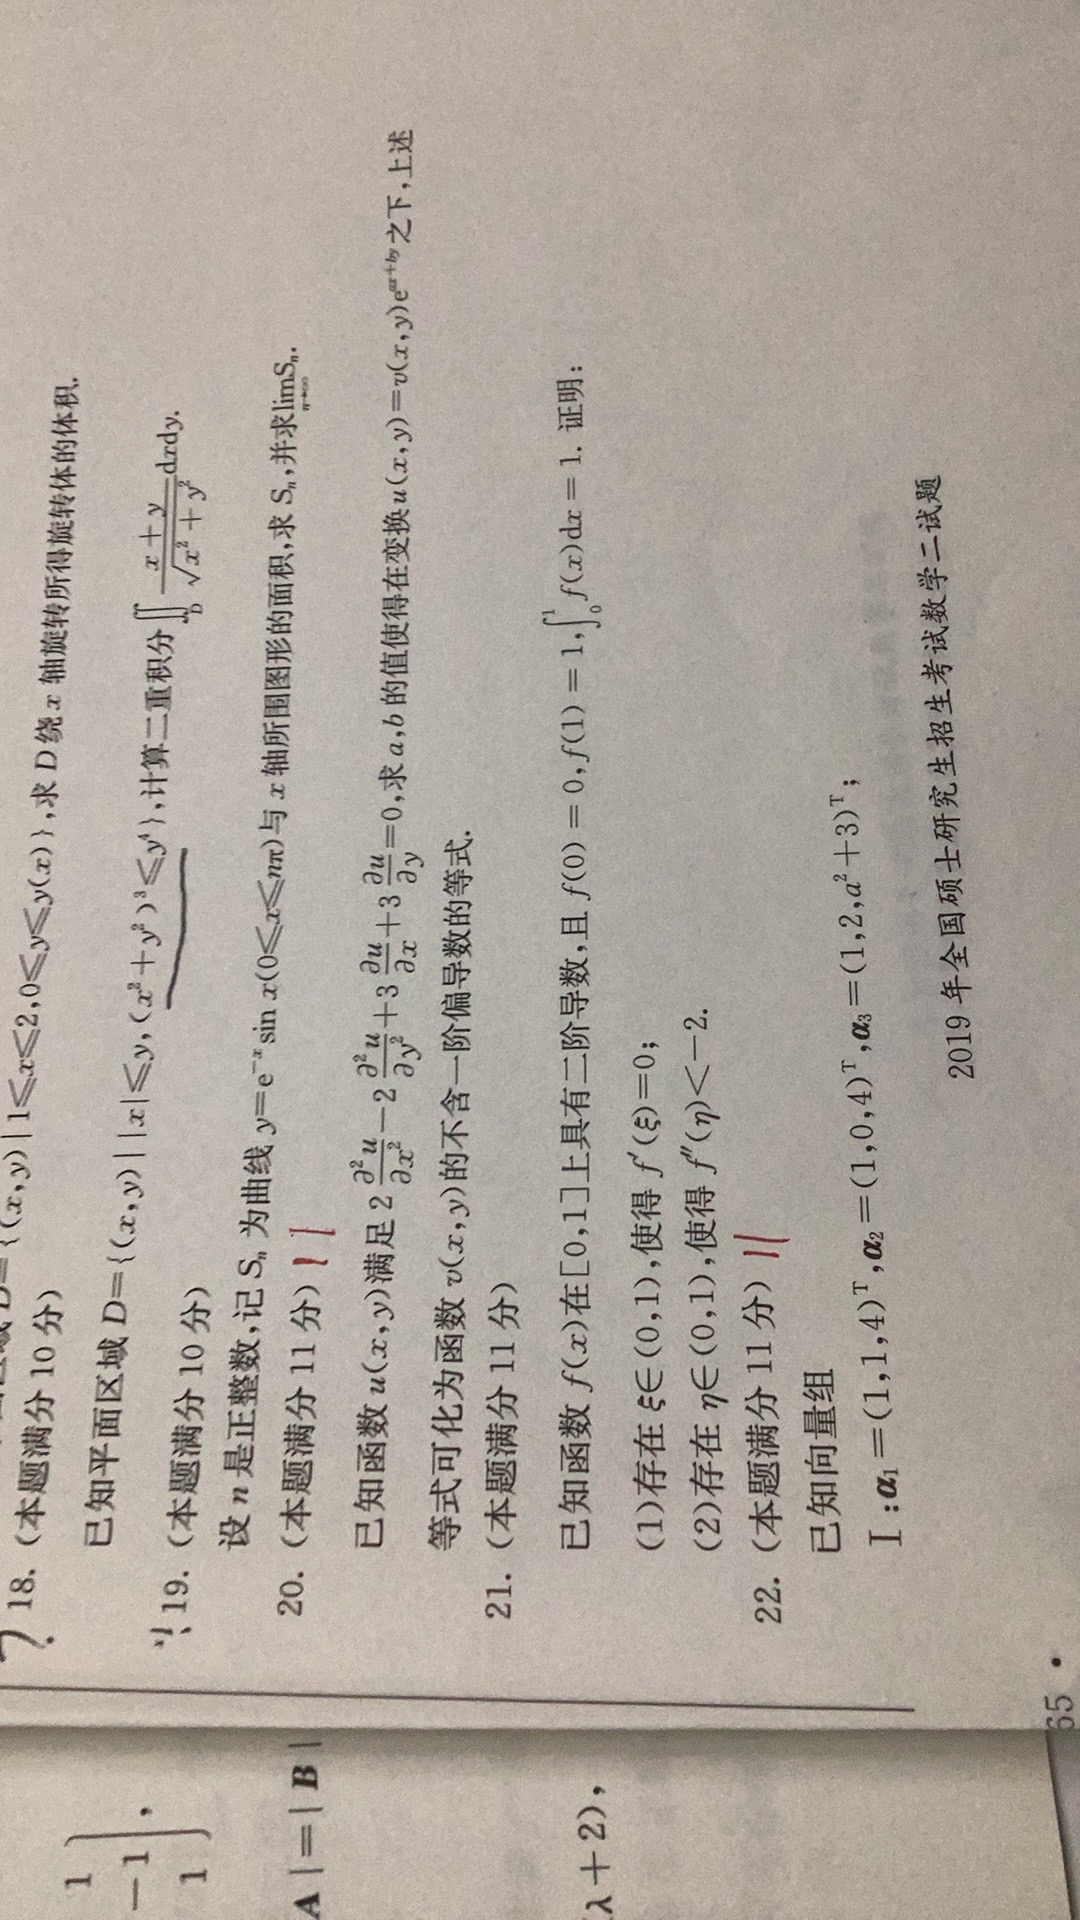 18. (本题满分 10 分)
已知平面区域 D={(x,y)||x|⩽y,(x²+y²)³⩽y⁴},计算二重积分∬_D (x+y)/√(x²+y²) dxdy.
19. (本题满分 10 分)
设 n 是正整数,记 Sₙ 为曲线 y=e⁻ˣsin x(0⩽x⩽nπ)与 x 轴所围图形的面积,求 Sₙ,并求lim_{n→∞}Sₙ.
20. (本题满分 11 分)
已知函数 u(x,y)满足 2 ∂²u/∂x² −2 ∂²u/∂y² +3 ∂u/∂x +3 ∂u/∂y =0,求 a,b 的值使得在变换 u(x,y)=v(x,y)e^{ax+by}之下,上述
等式可化为函数 v(x,y)的不含一阶偏导数的等式.
21. (本题满分 11 分)
已知函数 f(x)在[0,1]上具有二阶导数,且 f(0)=0,f(1)=1,∫₀¹ f(x)dx=1. 证明:
(1)存在 ξ∈(0,1),使得 f′(ξ)=0;
(2)存在 η∈(0,1),使得 f″(η)<−2.
22. (本题满分 11 分)
已知向量组
Ⅰ:α₁=(1,1,4)ᵀ,α₂=(1,0,4)ᵀ,α₃=(1,2,a²+3)ᵀ;
2019 年全国硕士研究生招生考试数学二试题
1
−1
1
,
A|=|B|
λ+2),